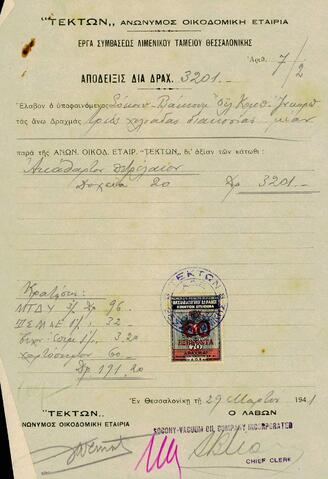 "ΤΕΚΤΩΝ„ ΑΝΩΝΥΜΟΣ ΟΙΚΟΔΟΜΙΚΗ ΕΤΑΙΡΙΑ
ΕΡΓΑ ΣΥΜΒΑΣΕΩΣ ΛΙΜΕΝΙΚΟΥ ΤΑΜΕΙΟΥ ΘΕΣΣΑΛΟΝΙΚΗΣ
Ἀριθ. 7/2
ΑΠΟΔΕΙΞΙΣ ΔΙΑ ΔΡΑΧ. 3201.-
Ἔλαβον ὁ ὑποφαινόμενος Σόκονυ-Βάκουμ
τὰς ἄνω Δραχμὰς τρεῖς χιλιάδας διακοσίας μίαν
παρὰ τῆς ΑΝΩΝ. ΟΙΚΟΔ. ΕΤΑΙΡ. "ΤΕΚΤΩΝ„ δι' ἀξίαν τῶν κάτωθι:
Ἀκάθαρτον πετρέλαιον
Δοχεῖα 20 Δρ 3201.-
Κρατήσεις
ΜΤΔΥ 3% Δρ 96.
1% 32.
3.20
Χαρτόσημον 60.-
Δρ 191.20
ΤΕΚΤΩΝ
ΕΒΔΟΜΗΝΤΑ
70
ΔΡΑΧΜΑΙ
Ἐν Θεσσαλονίκῃ τῇ 29 Μαρτίου 1941
"ΤΕΚΤΩΝ„ Ο ΛΑΒΩΝ
ΑΝΩΝΥΜΟΣ ΟΙΚΟΔΟΜΙΚΗ ΕΤΑΙΡΙΑ
SOCONY-VACUUM OIL COMPANY INCORPORATED
CHIEF CLERK